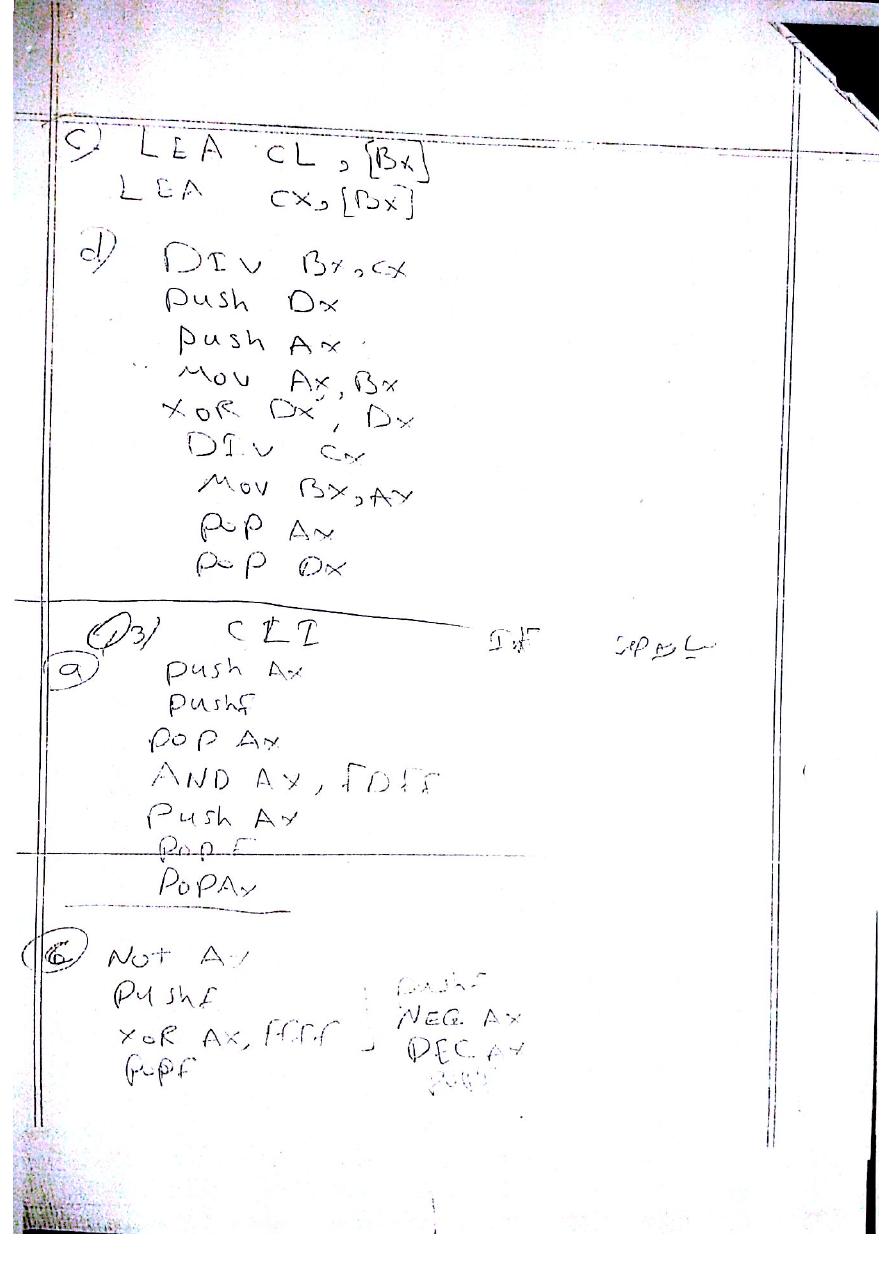 c) LEA CL, [Bx]
LEA Cx, [Bx]
d) DIV Bx, Cx
push Dx
push Ax
Mov Ax, Bx
XOR Dx, Dx
DIV Cx
Mov Bx, Ax
pop Ax
pop Dx
Q3) CLI IF
a push Ax
pushf
pop Ax
AND Ax, FDFF
push Ax
popf
PoPAx
b Not Ax
pushf pushf
XOR Ax, FFFF NEG Ax
popf DEC Ax
popf